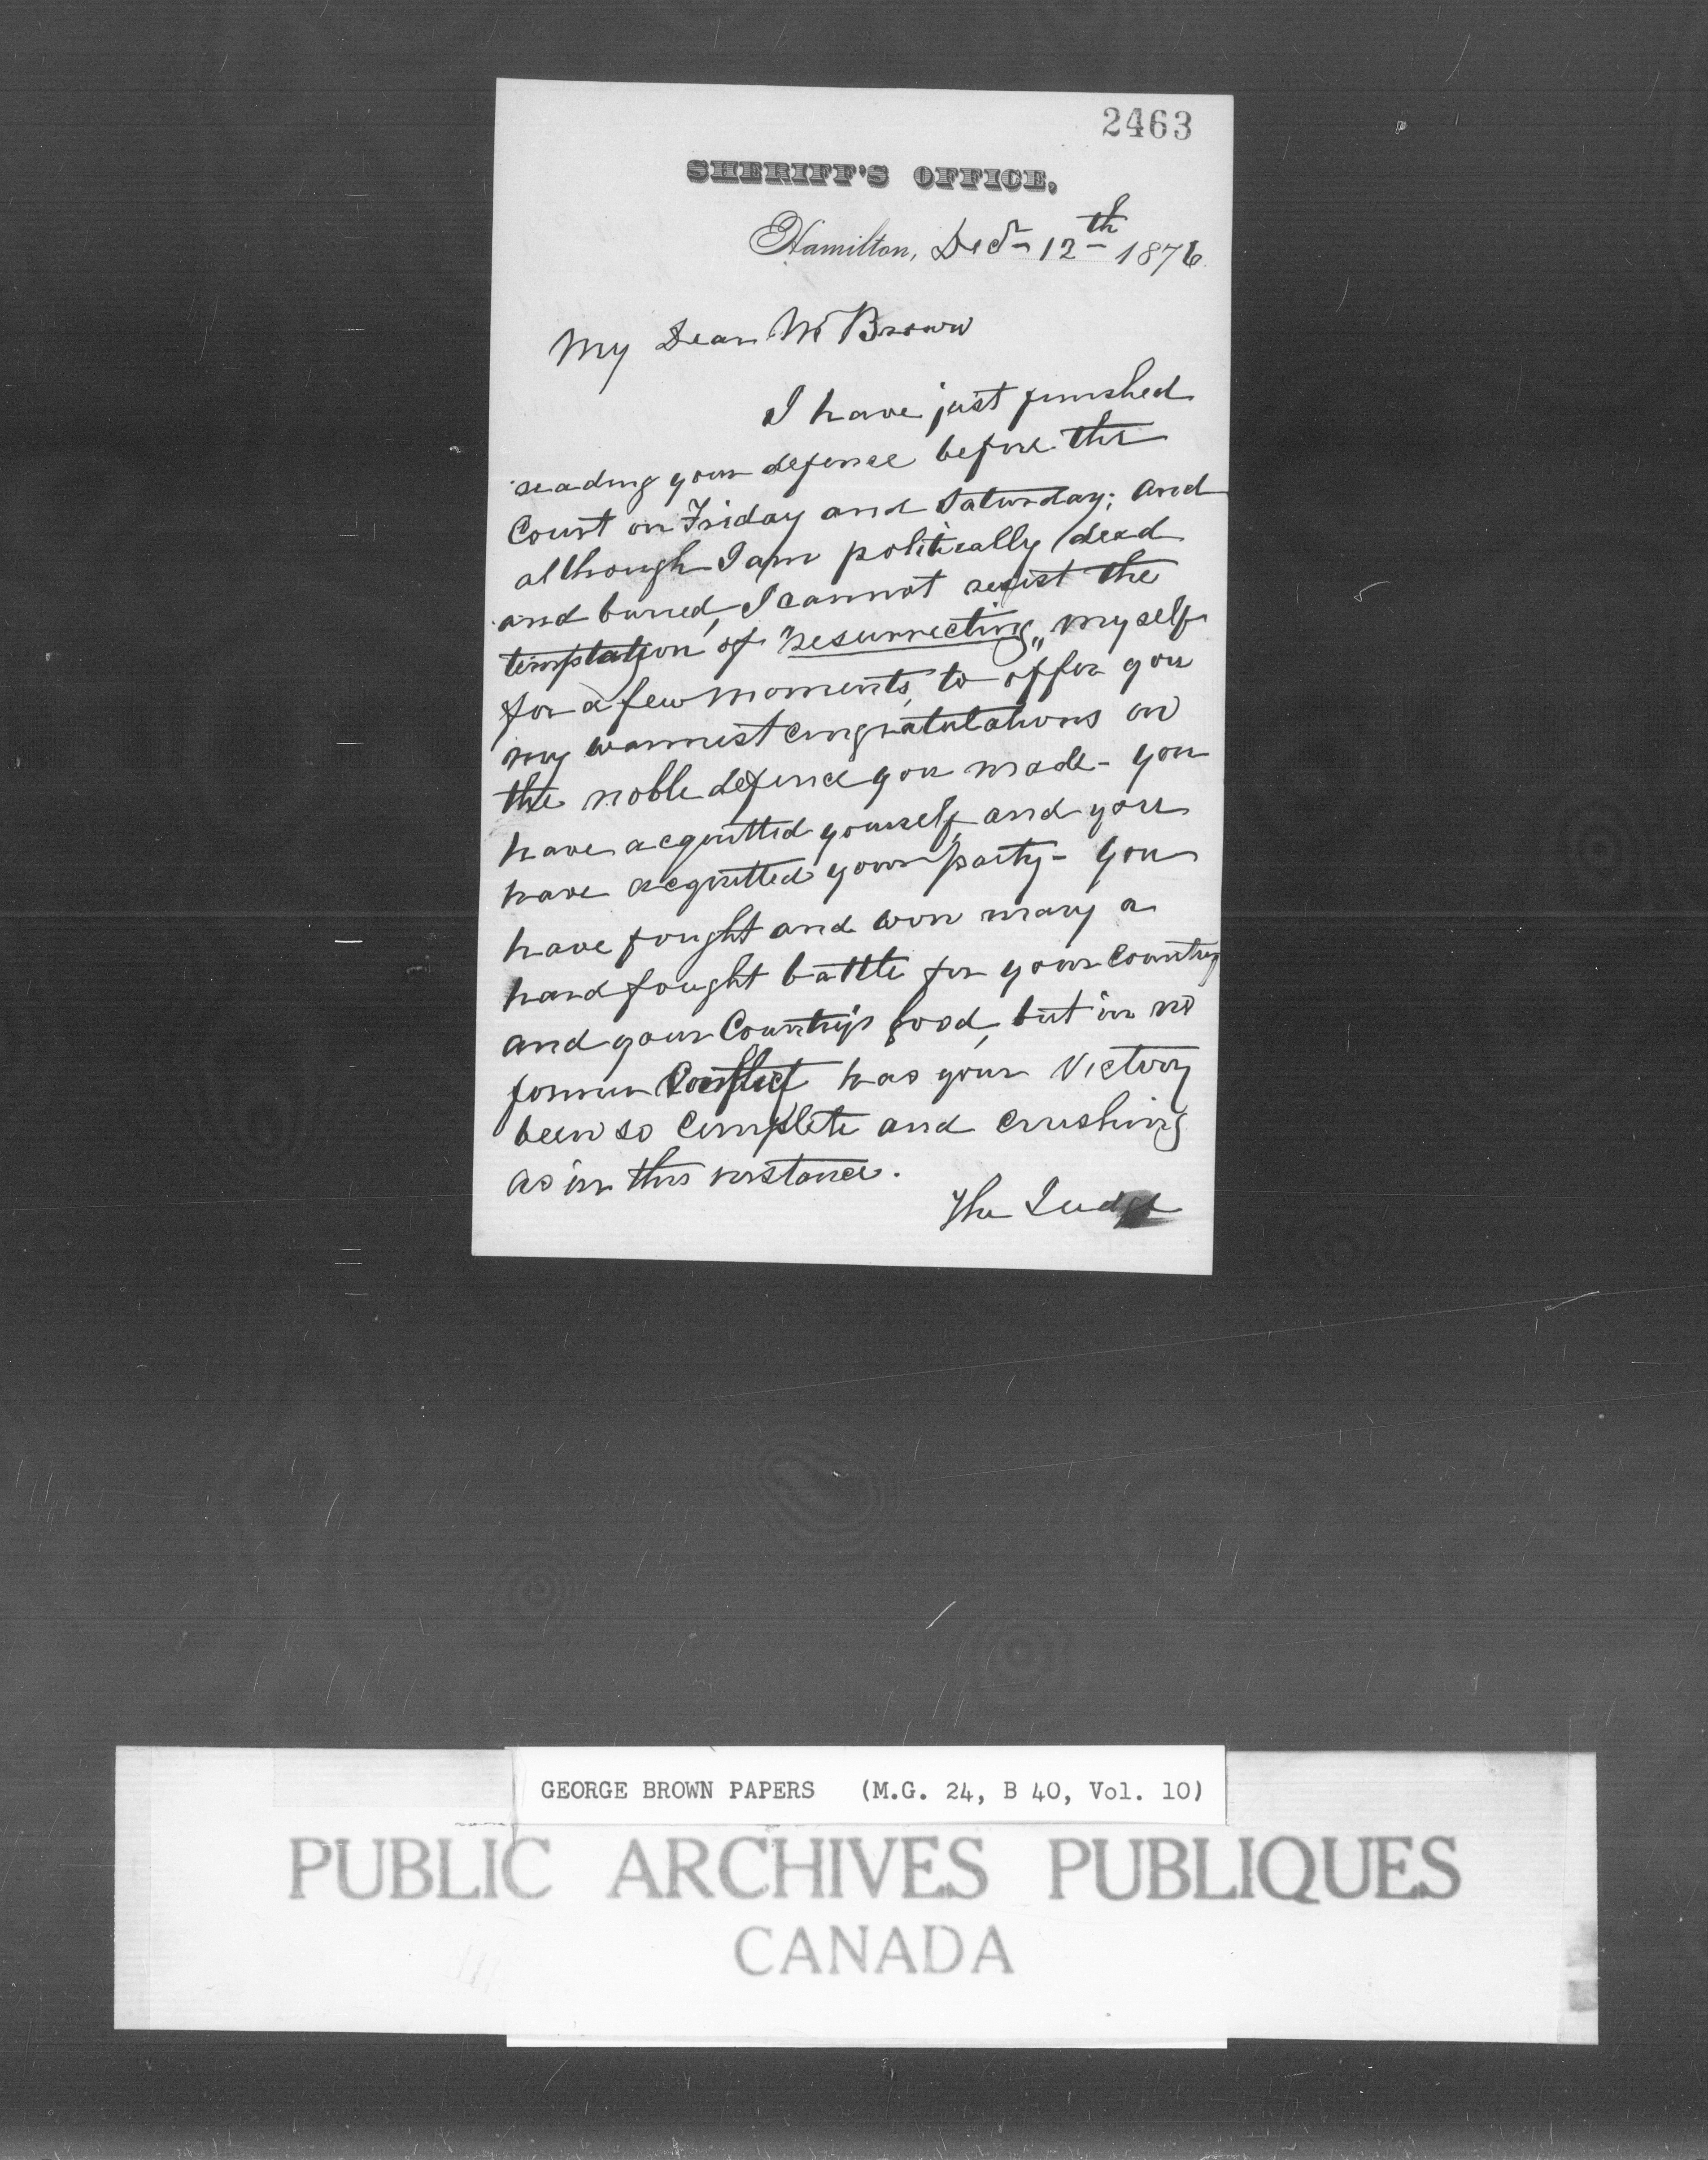 2463
SHERIFF'S OFFICE,
Hamilton, Decr 12th 1876
My Dear Mr Brown
I have just finished
reading your defence before the
Court on Friday and Saturday; and
although I am politically dead
and buried, I cannot resist the
temptation of "resurrecting" myself
for a few moments, to offer you
my warmest congratulations on
the noble defence you made - you
have acquitted yourself, and you
have acquitted your party - you
have fought and won many a
hard fought battle for your Country
and your Country's good, but in no
former Conflict has your Victory
been so complete and crushing
as in this instance.
The Judge
GEORGE BROWN PAPERS (M.G. 24, B 40, Vol. 10)
PUBLIC ARCHIVES PUBLIQUES
CANADA